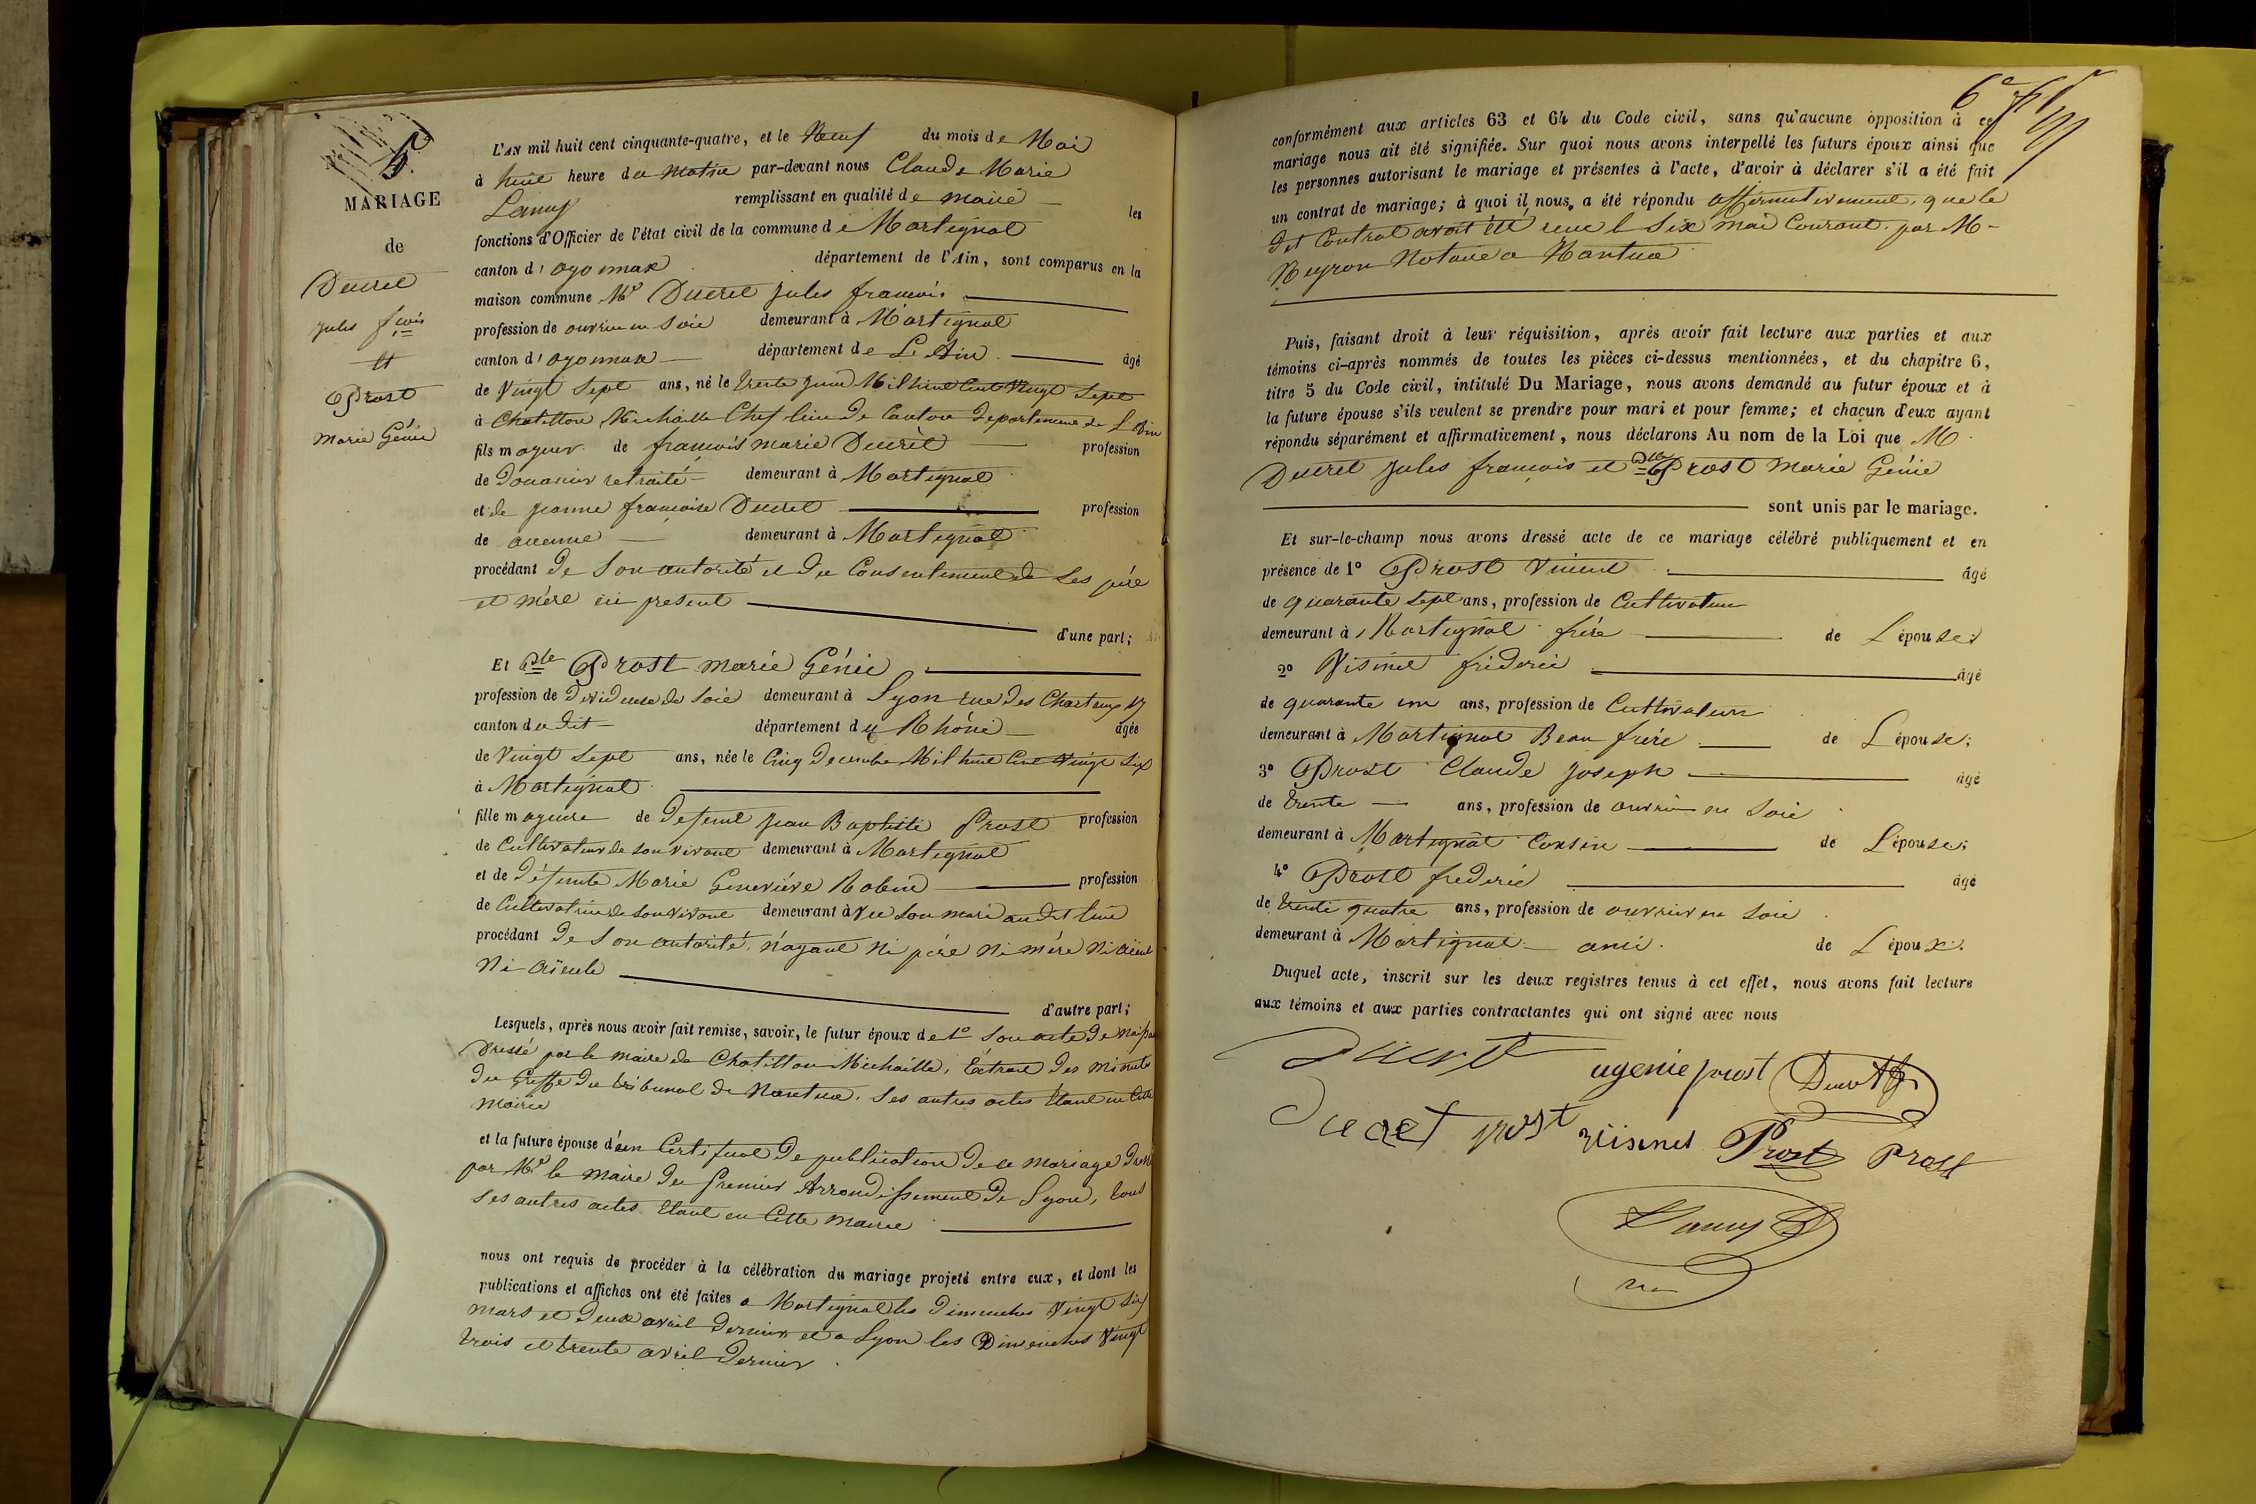 5.
MARIAGE
de
Ducret
jules f.cois
et
Prost
Marie Génie
L'AN mil huit cent cinquante-quatre, et le Neuf du mois de Mai
à huit heure du Matin par-devant nous Claude Marie
Lamy remplissant en qualité de maire les
fonctions d'Officier de l'état civil de la commune de Martignat
canton d'oyonnax département de l'Ain, sont comparus en la
maison commune Mr Ducret jules francois
profession de ouvrier en Soie demeurant à Martignat
canton d'oyonnax département de L'Ain âgé
de Vingt Sept ans, né le trente juin Mil huit Cent Vingt Sept
à Chatillon Michaille Chef lieu de Canton departement de L'Ain
fils mageur de francois marie Ducret profession
de Douanier retraité demeurant à Martignat
et de jeanne francoise Ducret profession
de aucune demeurant à Martignat
procédant de Son autorité et du Consentement de Ses père
et mère ici present
d'une part;
Et Dlle Prost marie Génie
profession de devideuse de Soie demeurant à Lyon rue des Chartreux 17
canton dudit département du Rhône âgée
de Vingt Sept ans, née le Cinq Decembre Mil huit Cent Vingt Six
à Martignat
fille mageure de defunt jean Baptiste Prost profession
de Cultivateur de Son vivant demeurant à Martignat
et de défunte Marie Geneviéve Robin profession
de Cultivatrice de Son vivant demeurant à vec Son mari audit lieu
procédant de Son autorité, n'ayant Ni père Ni mère Ni aïeul
Ni aïeule
d'autre part;
Lesquels, après nous avoir fait remise, savoir, le futur époux de 1º Son acte de Naissan
Dressé par le maire de Chatillon Michaille, Extrait des minutes
du Greffe du tribunal de Nantua. Ses autres actes Etant en Cette
Mairie
et la future épouse d'un Certificat de publication de ce mariage Dressé
par Mr le Maire du Premier Arrondissement de Lyon, tous
Ses autres actes Etant en Cette Mairie
nous ont requis de procéder à la célébration du mariage projeté entre eux, et dont les
publications et affiches ont été faites a Martignat les Dimanches Vingt Six
Mars et Deux avril Dernier et a Lyon les Dimanches Vingt
trois et trente avril Dernier.
6e
conformément aux articles 63 et 64 du Code civil, sans qu'aucune opposition à ce
mariage nous ait été signifiée. Sur quoi nous avons interpellé les futurs époux ainsi que
les personnes autorisant le mariage et présentes à l'acte, d'avoir à déclarer s'il a été fait
un contrat de mariage; à quoi il nous a été répondu affirmativement, que le
dit Contrat avait été recu le Six mai Courant par M
Neyron Notaire a Nantua
Puis, faisant droit à leur réquisition, après avoir fait lecture aux parties et aux
témoins ci-après nommés de toutes les pièces ci-dessus mentionnées, et du chapitre 6,
titre 5 du Code civil, intitulé Du Mariage, nous avons demandé au futur époux et à
la future épouse s'ils veulent se prendre pour mari et pour femme; et chacun d'eux ayant
répondu séparément et affirmativement, nous déclarons Au nom de la Loi que M
Ducret jules françois et Dlle Prost Marie Génie
sont unis par le mariage.
Et sur-le-champ nous avons dressé acte de ce mariage célébré publiquement et en
présence de 1º Prost Vincent âgé
de quarante Sept ans, profession de Cultivateur
demeurant à Martignat frère de L'épouse;
2º Visinet frideric âgé
de quarante un ans, profession de Cultivateur
demeurant à Martignat Beau frère de L'épouse;
3º Prost Claude joseph âgé
de trente ans, profession de ouvrier en Soie
demeurant à Martignat Cousin de L'épouse;
4º Prost frederic âgé
de trente quatre ans, profession de ouvrier en Soie
demeurant à Martignat ami de L'époux.
Duquel acte, inscrit sur les deux registres tenus à cet effet, nous avons fait lecture
aux témoins et aux parties contractantes qui ont signé avec nous
Ducret ugenie prost Ducret
Ducret prost visinet Prost Prost
Lamy